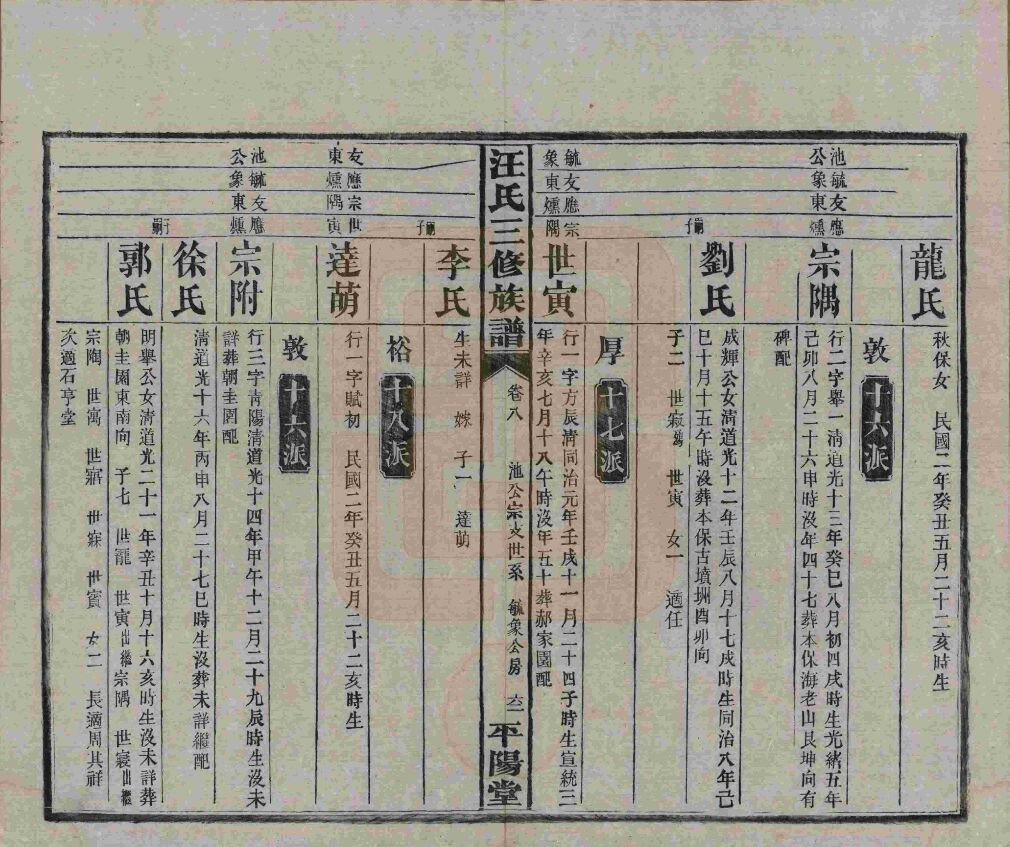 龍氏
秋保女　民國二年癸丑五月二十二亥時生
敦　十六派
池毓友應
公象東燻
宗隅
行二字舉一清道光十三年癸巳八月初四戌時生光緒五年
己卯八月二十六申時沒年四十七葬本保海老山艮坤向有
碑配
嗣子
劉氏
成輝公女清道光十二年壬辰八月十七戌時生同治八年己
巳十月十五午時沒葬本保古墳圳酉卯向
子二　世寂　世寅　女一　適任
厚　十七派
毓友應宗
象東燻隅
世寅
行一字方辰清同治元年壬戌十一月二十四子時生宣統三
年辛亥七月十八午時沒年五十葬郝家園配
汪氏三修族譜
卷八　池公宗支世系　毓象公房　六二
平陽堂
嗣子
李氏
生未詳　嫁　子一　達萌
裕　十八派
友應宗世
東燻隅寅
達萌
行一字賦初　民國二年癸丑五月二十二亥時生
敦　十六派
池毓友應
公象東燻
宗附
行三字青陽清道光十四年甲午十二月二十九辰時生沒未
詳葬朝圭園配
徐氏
清道光十六年丙申八月二十七巳時生沒葬未詳繼配
嗣子
郭氏
明舉公女清道光二十一年辛丑十月十六亥時生沒未詳葬
朝圭園東南向　子七　世寵　世寅出繼宗隅　世寢出繼
宗陶　世寓　世寤　世寐　世賓　女二　長適周其祥
次適石亨堂